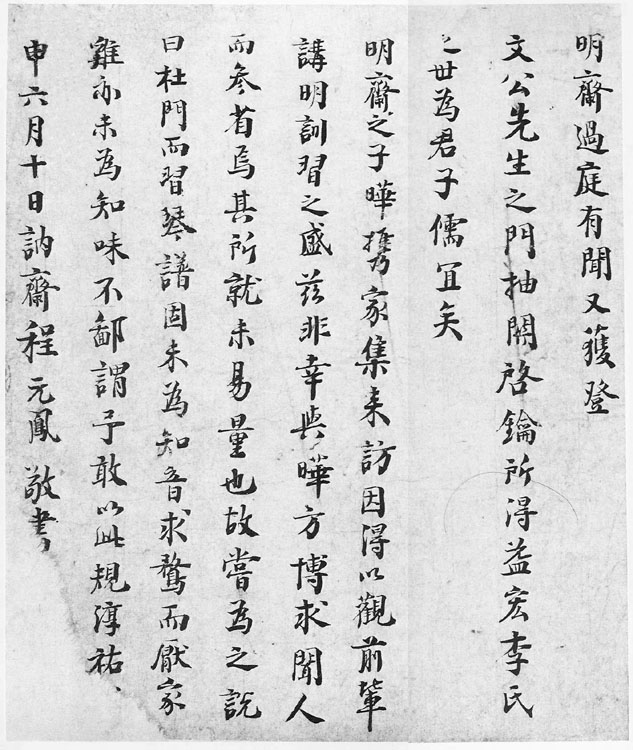 明齋過庭有聞又獲登
文公先生之門抽關啓鑰所得益宏李氏
之世為君子儒冝矣
明齋之子曄携家集来訪因得以觀前輩
講明訓習之盛茲非幸與曄方博求聞人
而叅省焉其所就未易量也故嘗為之說
曰杜門而習琴譜固未為知音求鶩而厭家
雞亦未為知味不鄙謂予敢以此規淳祐
申六月十日訥齋程元鳳敬書